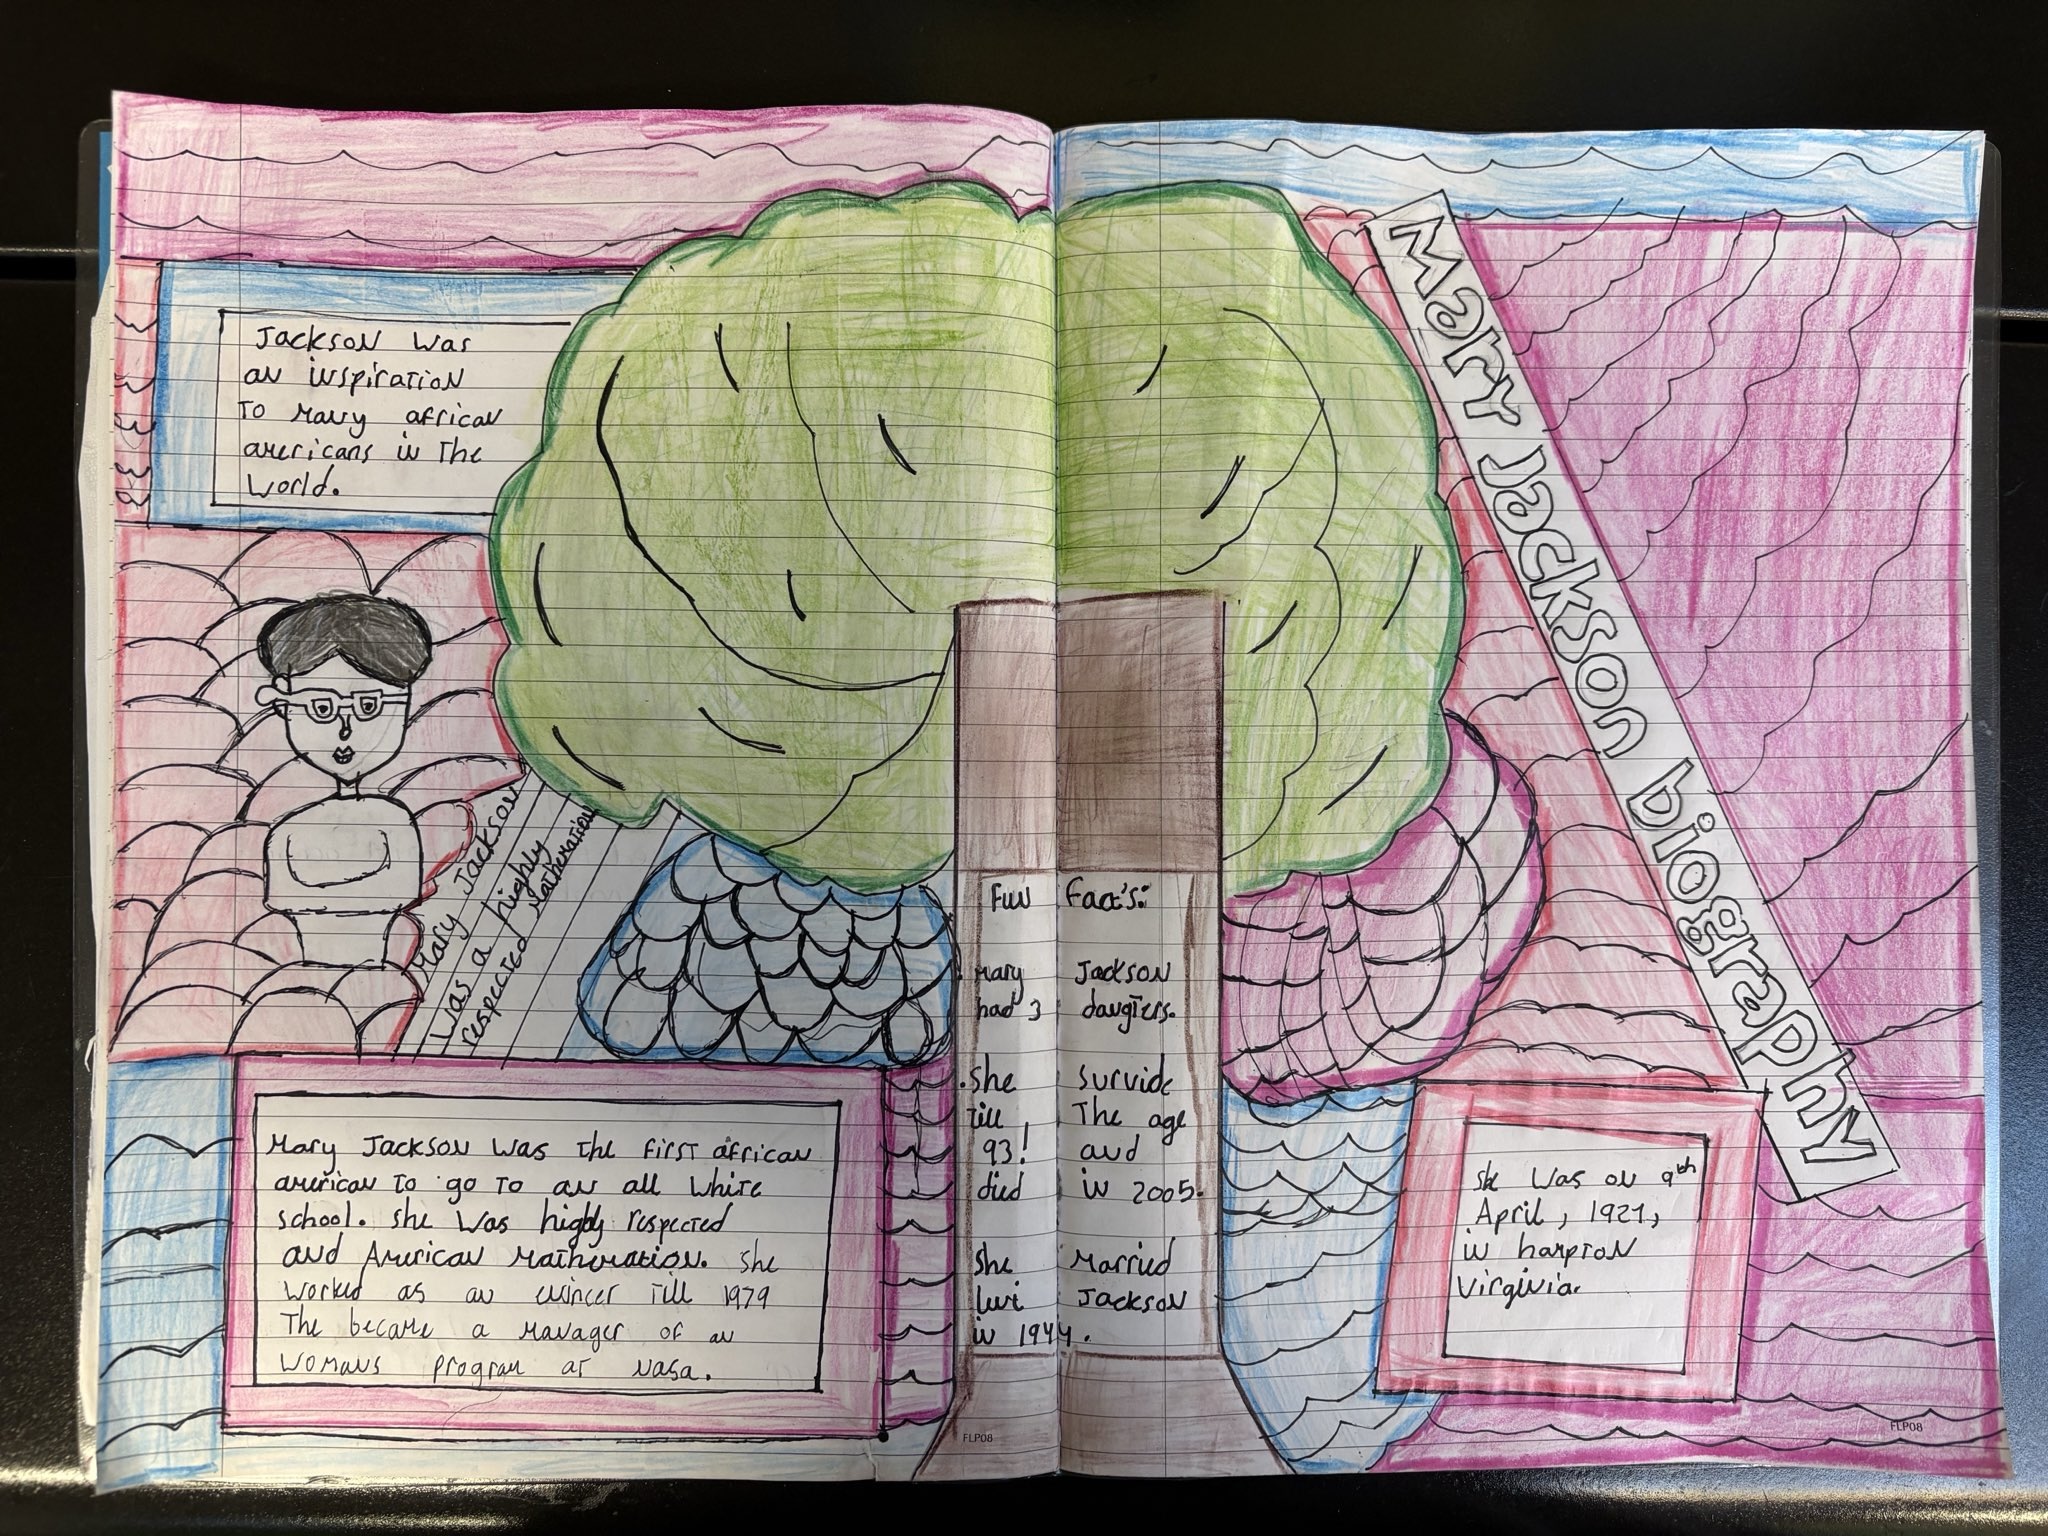 Mary Jackson biography
Jackson was
an inspiration
to many african
americans in the
world.
Mary Jackson
was a highly
respected Mathemation
Mary Jackson was the first african
american to go to an all white
school. she was highly respected
and American Mathemation. She
worked as an enincer till 1979
The became a manager of an
womans program at nasa.
Fun Fact's:
Mary Jackson
had 3 daugters.
.She survide
till the age
93! and
died in 2005.
She Married
Levi Jackson
in 1944.
She was on 9th
April, 1921,
in hampton
Virginia.
FLP08
FLP08